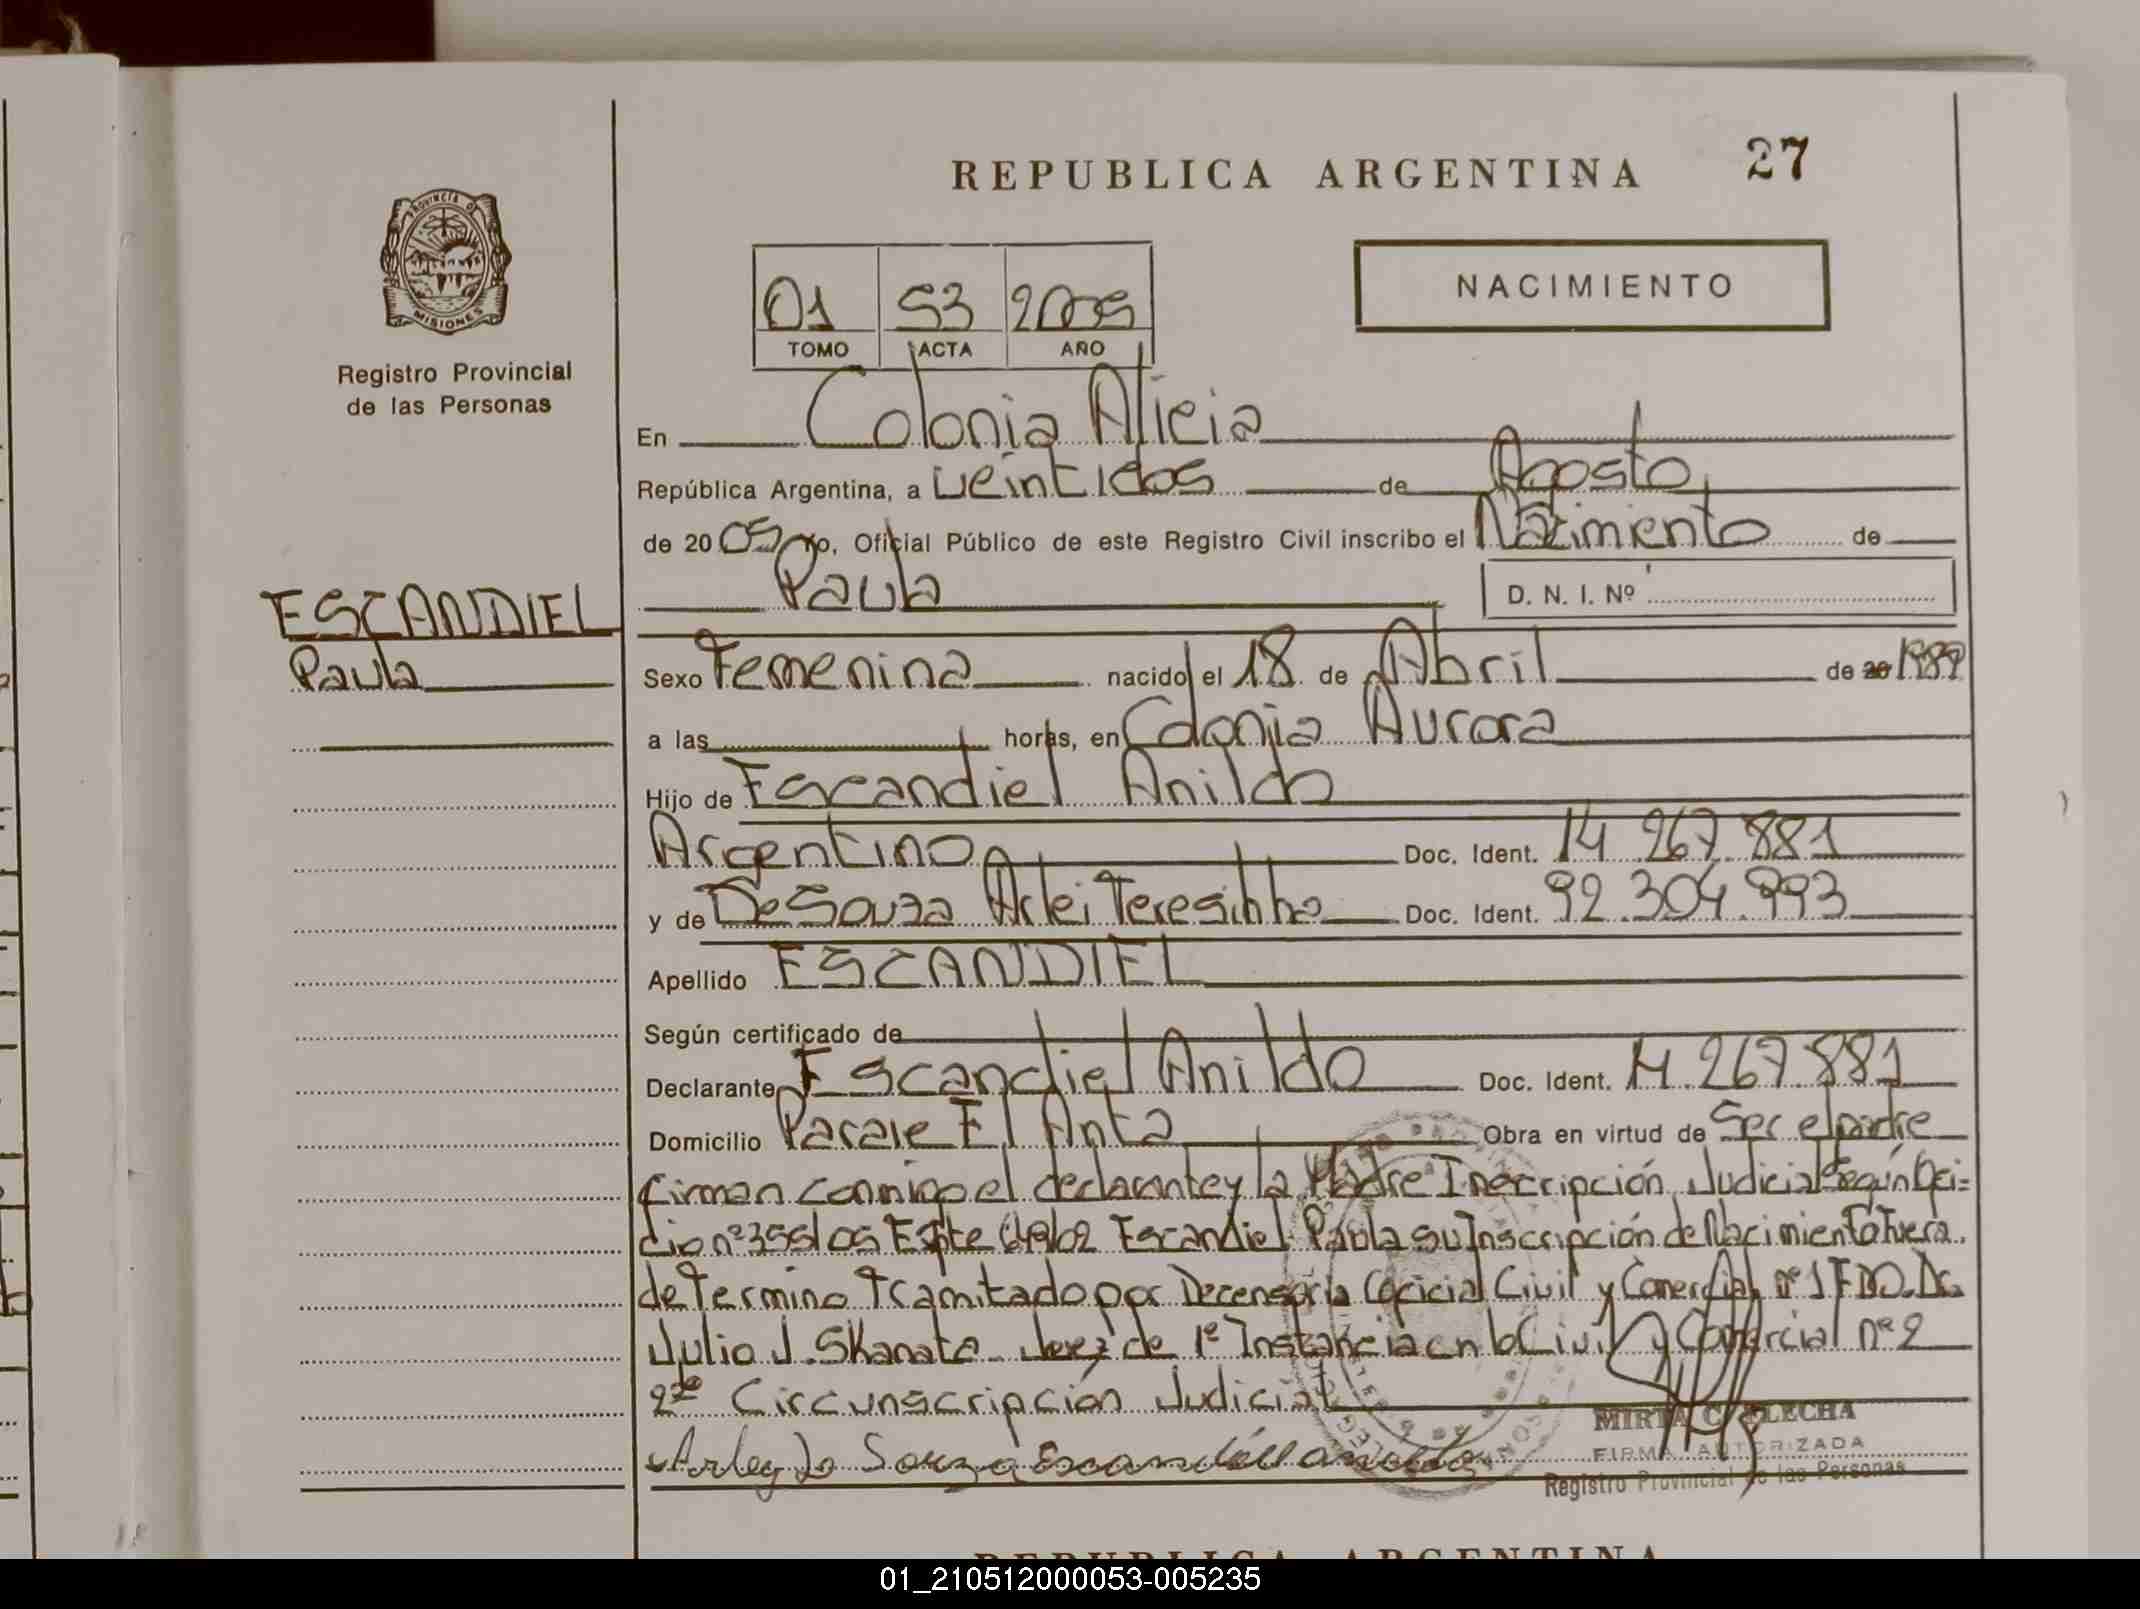 REPUBLICA ARGENTINA 27
PROVINCIA DE
MISIONES
Registro Provincial
de las Personas
01 53 2005
TOMO ACTA AÑO
NACIMIENTO
En Colonia Alicia
República Argentina, a veintidos de Agosto
de 20 05 Yo, Oficial Público de este Registro Civil inscribo el Nacimiento de
Paula
D. N. I. Nº
ESCANDIEL
Paula
Sexo Femenina nacido el 18 de Abril de 20 1989
a las horas, en Colonia Aurora
Hijo de Escandiel Anildo
Argentino Doc. Ident. 14 267 881
y de De Souza Arlei Teresinha Doc. Ident. 92.304.993
Apellido ESCANDIEL
Según certificado de
Declarante Escandiel Anildo Doc. Ident. 14.267.881
Domicilio Paraje El Anta Obra en virtud de Ser el padre
firman conmigo el declarante y la Madre Inscripción Judicial Según
nº 355/05 Expte 649/02 Escandiel Paula su Inscripción de Nacimiento Fuera
de Termino Tramitado por Oficial Civil y Comercial nº 1 FDO. Dr.
Julio J. Skanata Juez de 1º Instancia en lo Civil y Comercial nº 2
2º Circunscripción Judicial
Arley De Souza Escandiel
MIRTA C. FLECHA
FIRMA AUTORIZADA
Registro Provincial de las Personas
REPUBLICA ARGENTINA
01_210512000053-005235